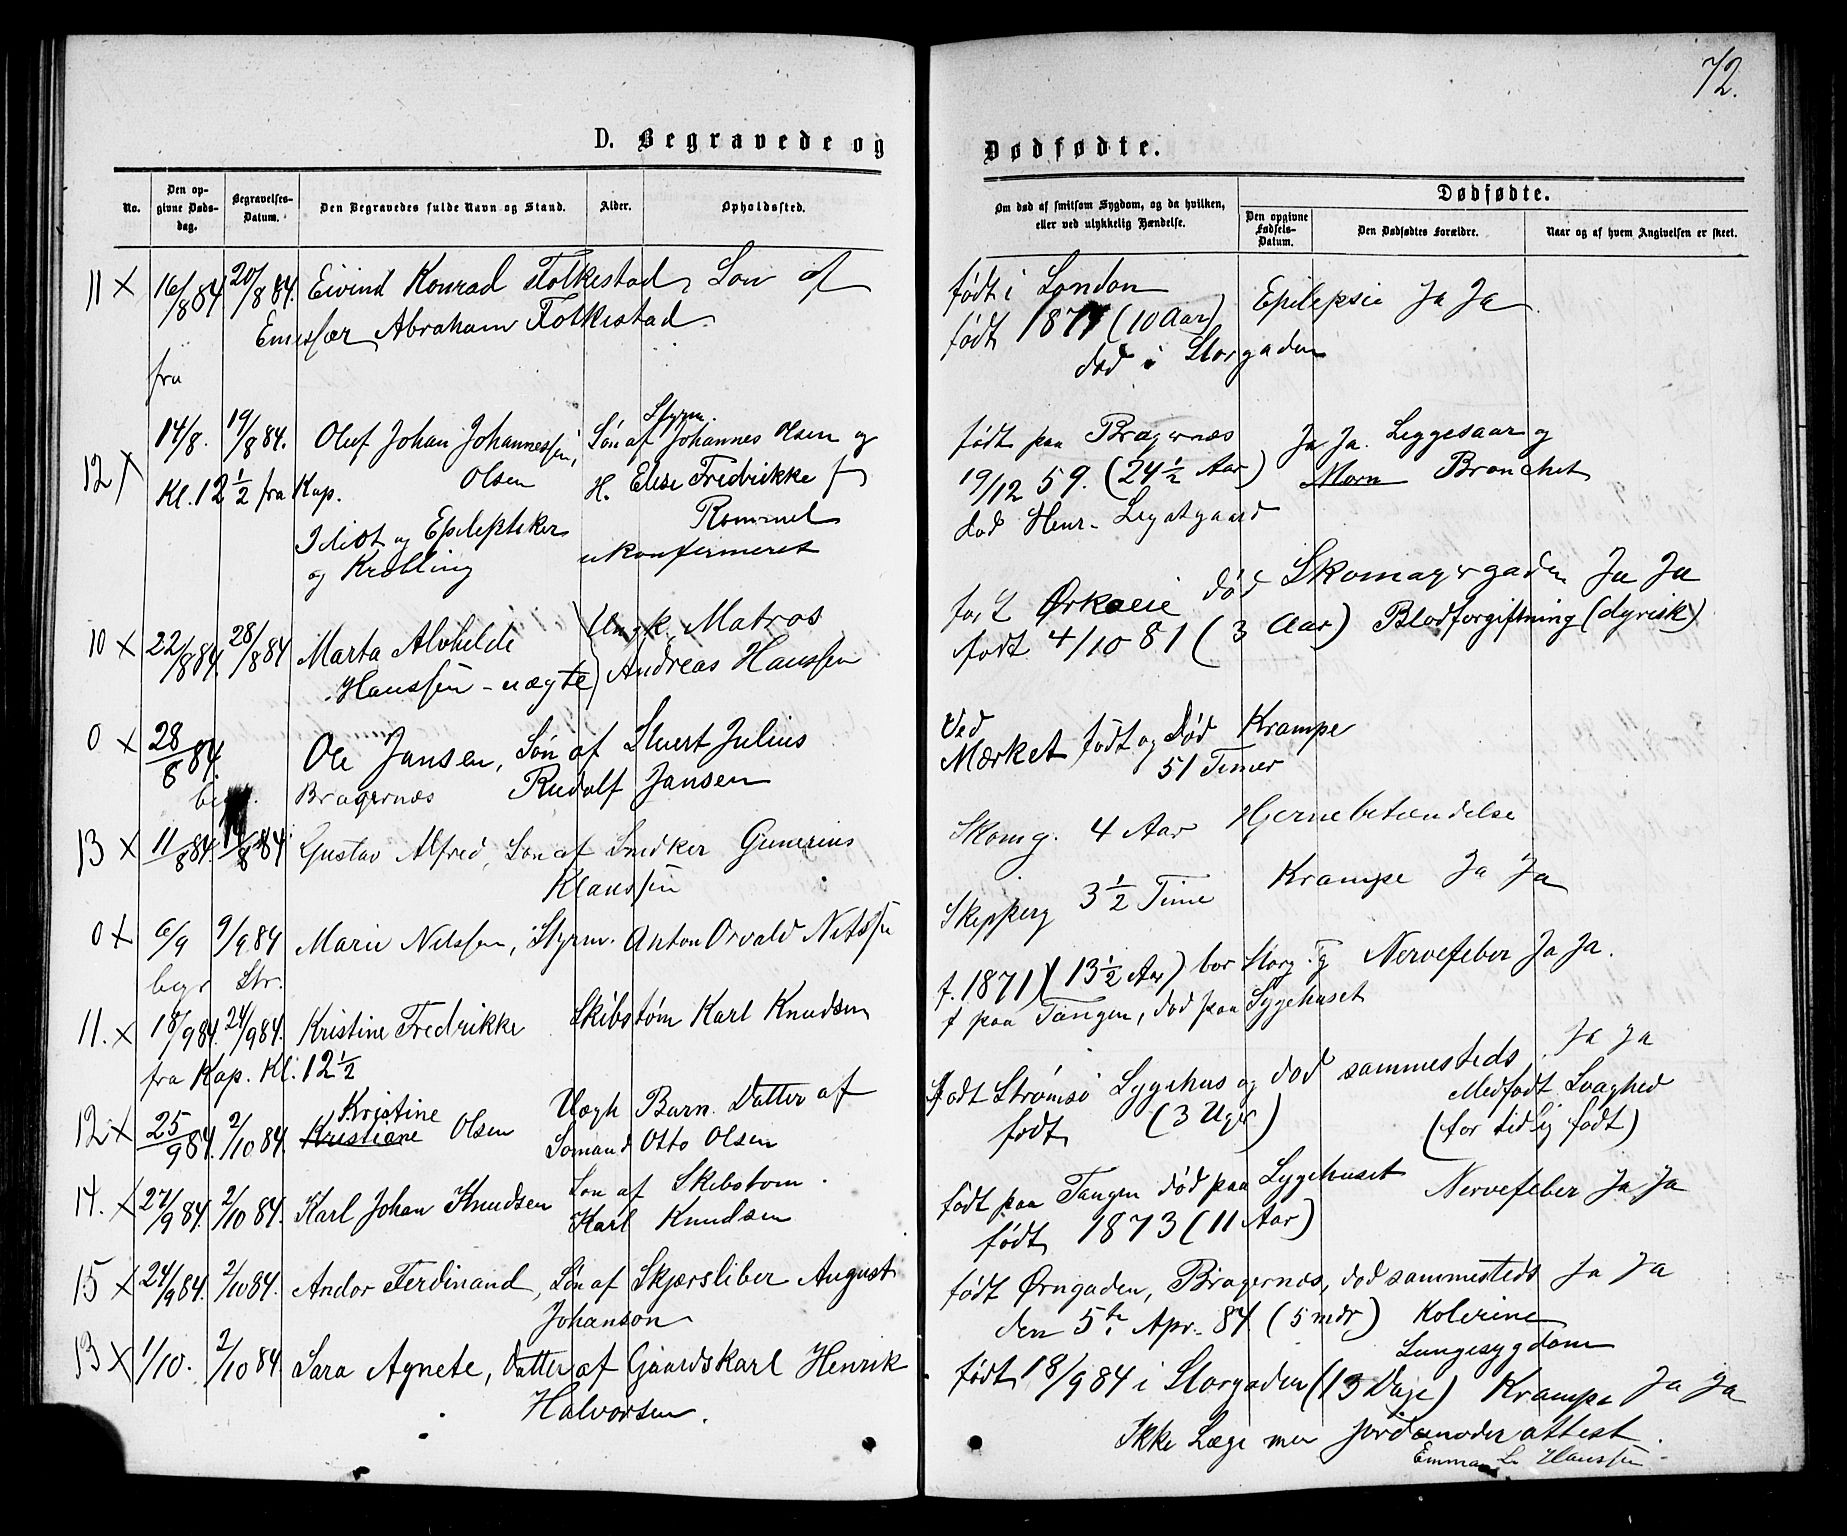 72.
D. Begravede og Dødfødte.
No.
Den opgivne Dødsdag.
Begravelses-Datum.
Den Begravedes fulde Navn og Stand.
Alder.
Opholdssted.
Om død af smitsom Sygdom, og da hvilken, eller ved ulykkelig Hændelse.
Dødfødte.
Den opgivne Fødsels-Datum.
Den Dødfødtes Forældre.
Naar og af hvem Angivelsen er skeet.
11 X 16/8 84 20/8 84. Eivind Konrad Folkestad, Søn af
Abraham Folkestad.
fra
født i London
født 1874 (10 Aar) Epilepsie Ja Ja
død i Storgaden
12 X 14/8. 19/8 84. Oluf Johan Johannessen, Søn af Styrm. Johannes Olsen og
Kl. 12 1/2 fra Kap. Olsen H. Elise Fredrikke f
Idiot og Epileptiker Rommel
og Krøbling ukonfirmeret
født paa Bragernæs Ja Ja. Liggesaar og
19/12 59. (24 1/2 Aar) Bronchet
død Henr. Legatgaard
10 X 22/8 84. 28/8 84 Marta Alvhilde Ungk. Matros
Hanssen - uægte Andreas Hanssen
Ørkeeie død Skomagergaden Ja Ja
født 4/10 81 (3 Aar) Blodforgiftning (dyrisk)
0 X 28/8 84. Ole Jansen, Søn af Stuert Julius
begr. Bragernæs Rudolf Jansen
Ved
Mærket født og død Krampe
51 Timer
13 X 11/8 84. 14/8 84 Gustav Alfred, Søn af Snedker Gunerius
Klaussen
Skomg. 4 Aar Hjernebetændelse
0 X 6/9 9/9 84 Marie Nilssen, Styrm. Anton Osvald Nilssen
begr Str.
Skipperg 3 1/2 Time Krampe Ja Ja
11. X 18/9 84. 24/9 84. Kristine Fredrikke Skibstøm Karl Knudsen
fra Kap. Kl. 12 1/2
f. 1871 (13 1/2 Aar) bor Storg. Nervefeber Ja Ja.
f paa Tangen, død paa Sygehuset
12 X 25/9 84. 2/10 84. Kristiane Kristine Olsen Uægt. Barn. Datter af
Sømand Otto Olsen
Født Strømsø Sygehus og død sammesteds. Ja Ja
født (3 Uger) Medfødt Svaghed
(for tidlig født)
14. X 27/9 84. 2/10 84. Karl Johan Knudsen Søn af Skibstøm.
Karl Knudsen
født paa Tangen død paa Sygehuset Nervefeber Ja Ja
født 1873 (11 Aar)
15 X 24/9 84. 2/10 84. Andor Ferdinand, Søn af Skjærsliber August
Johanson
født Ørngaden, Bragernæs, død sammesteds Ja Ja
den 5te Apr. 84 (5 mdr) Kolerine
Lungesygdom
13 X 1/10. 2/10 84. Sara Agnete, Datter af Gaardskarl Henrik
Halvorsen.
født 18/9 84 i Storgaden (13 Dage) Krampe Ja Ja
Ikke Læge men Jordemoder attest.
Emma Hanssen